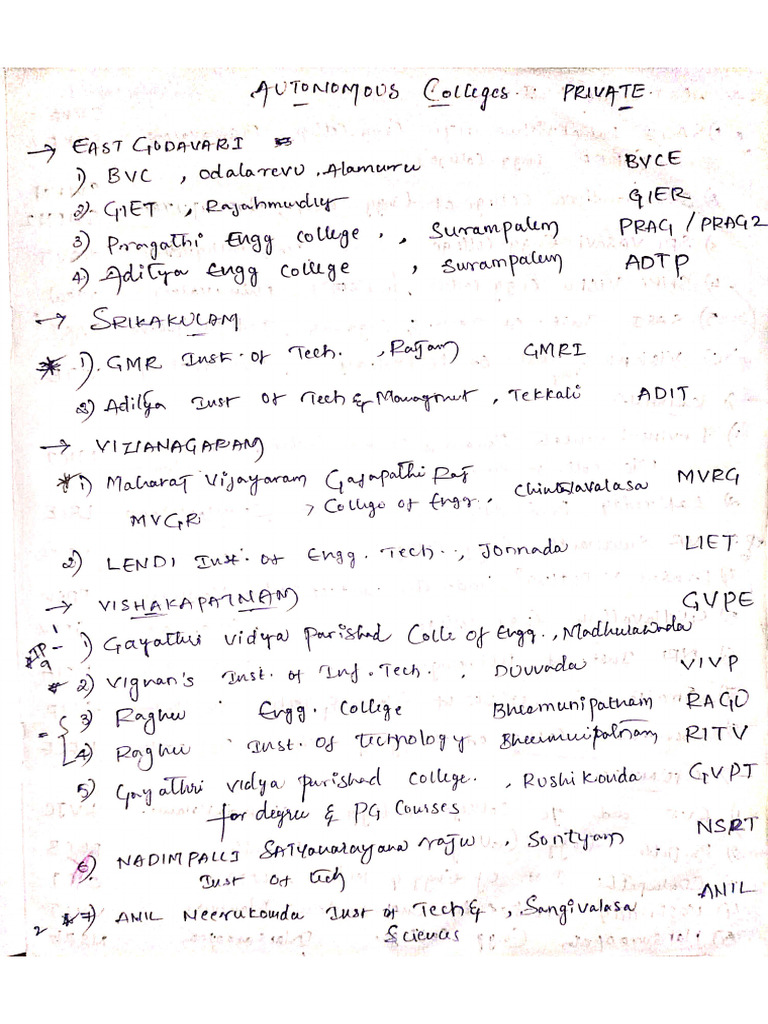 AUTONOMOUS Colleges : PRIVATE.
→ EAST GODAVARI
1). BVC , Odalarevu, Alamurru BVCE
2) GIET , Rajahmundry GIER
3) Pragathi Engg college , Surampalem PRAG / PRAG2
4) Aditya Engg college , Surampalem ADTP
→ SRIKAKULAM
* 1). GMR Inst. of Tech. , Rajam GMRI
2) Aditya Inst Of Tech & Managment , Tekkali ADIT.
→ VIZIANAGARAM
* 1) Maharaj Vijayaram Gajapathi Raj
, College of Engg. Chintalavalasa MVRG
MVGR
2) LENDI Inst. of Engg. Tech. , Jonnada LIET
→ VISHAKAPATNAM GVPE
1) Gayathri Vidya Parishad Colle of Engg., Madhurawada
* 2) Vignan's Inst. of Inf. Tech. , Duvvada VIVP
3) Raghu Engg. College Bheemunipatnam RAGU
4) Raghu Inst. Of Technology Bheemunipatnam RITV
5) Gayathri vidya purishad college. , Rushikonda GVPT
for degree & PG Courses
6) NADIMPALLI SATyanarayana raju , Sontyam NSRT
Inst Of tech
ANIL
2 * 7) ANIL Neerukonda Inst of Tech & , Sangivalasa
Sciences